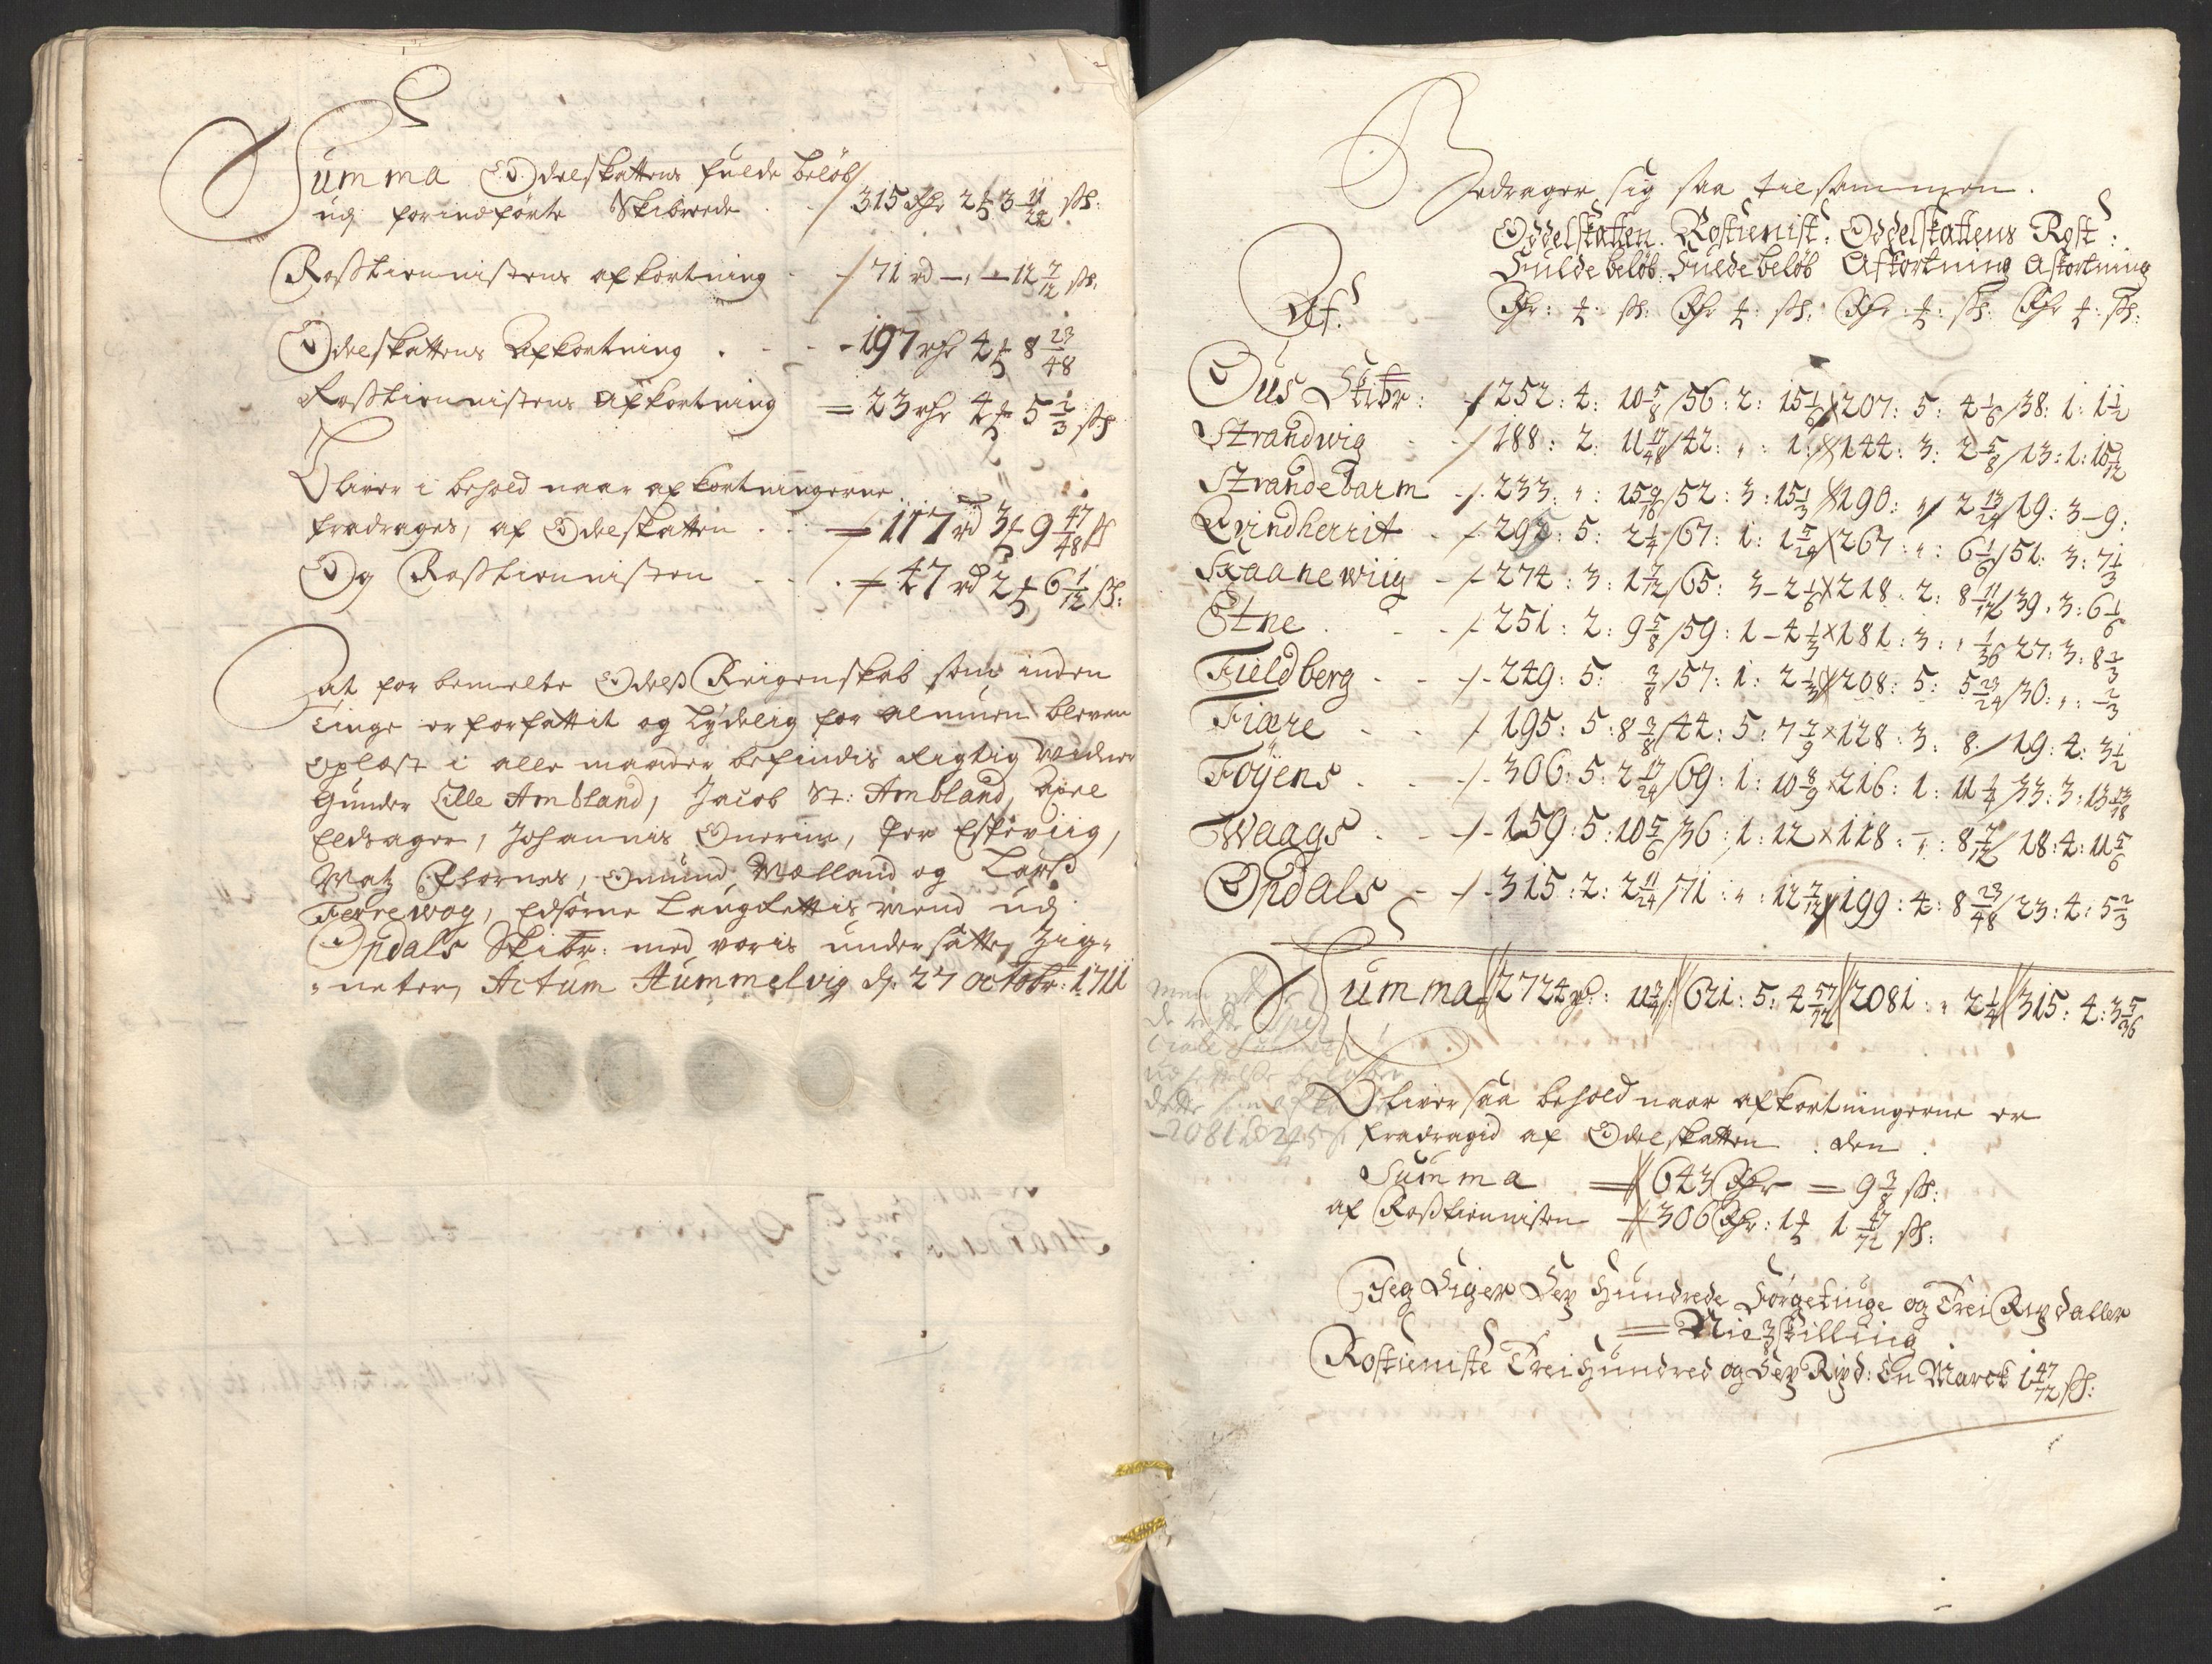 Summa Odelskattens fulde beløb
udj forindførte Skibrede / 315 Rdr 2 ƒ 3 11/24 ß:
Rosstienistens afkortning / 71 rd – „ – 12 7/12 ß:
Odelskattens Afkortning - 197 rdr 4 ƒ 8 23/48
Rosstienistens Afkortning = 23 rdr 4 ƒ 5 2/3 ß
Bliver i behold naar afkortningerne
fradrages, af Odelskatten = 117 rd 3 ƒ 9 47/48 ß
Og Rosstienisten = 47 rd 2 ƒ 6 1/12 ß:
At for bemelte Odels Reigenskab som inden
tinge er forfattit og lydelig for Almuen bleven
oplæst i alle maader befindis Rigtig Widner
Gunder Lille Ambland, Jacob St: Ambland,
Eldsager, Johannis Onerim, Per Eskeviig,
Matz, Omund Mælland og Larss
Ferrewog, Edsorne Laugrettis Mænd udj
Opdals Skibr: med voris undersatte Zig-
-neter, Actum Hummelvig dj 27 octobr: 1711
Bedrager sig saa tilsammen.
Oddelskatten. Rostienist: Oddelskattens Rost:
Fulde beløb: Fulde beløb Afkortning Afkortning
Af. Rdr: ƒ: ß: Rdr ƒ: ß: Rdr: ƒ: ß: Rdr ƒ: ß:
Ous Skibr: / 252: 4: 10 5/8 / 56: 2: 15 1/6 / 207: 5: 4 1/6 / 38: 1: 1 1/2
Strandwig / 188: 2: 11 17/48 / 42: „: 1: / 144: 3: 2 5/8 / 13: 1: 10 1/12
Strandebarm / 233: „: 15 9/16 / 52: 3: 15 1/3 / 190: „ / 2 13/24 / 19: 3 – 9:
Qvindherrit / 292: 5: 2 1/4 / 67: 1: 1 5/24 / 267: „: 6 1/6 / 51: 3: 7 1/3
Skaanewiig / 274: 3: 1 7/12 / 65: 3 – 2 1/6 / 218: 2: 8 11/12 / 39: 3: 6 1/6
Etne / 251: 2: 9 5/8 / 59: 1 – 4 1/3 / 181: 3: „ 1/36 27: 3: 8 2/3
Fieldberg / 249: 5: 3/8 / 57: 1: 2 1/3 / 208: 5: 5 23/24 / 30: „: – 2/3
Fiære / 195: 5: 8 3/8 / 44: 5: 7 7/9 × 128: 3: 8 / 19: 4: 3 1/2
Føÿens / 306: 5: 2 17/24 / 69: 1: 10 8/9 × 216: 1: 11 1/4 / 33: 3: 13 13/18
Waags / 159: 5: 10 5/6 / 36: 1: 12 × 118: „: 8 7/12 / 18: 4: 11 5/6
Opdals / 315: 2: 2 11/24 / 71: „: 12 7/12 / 199: 4: 8 23/48 / 23: 4: 5 2/3
Summa // 2724 rd: 11 3/4 // 621: 5: 4 57/72 // 2081: „ 2 1/4 // 315: 4: 3 5/36
2081
Bliver saa behold naar afkortningerne er
fradragid af Odelskatten: den
Summa = // 643 Rdr = 9 3/8 ß:
af Rosstienisten / 306 Rdr: 1 ƒ 1 47/72 ß:
Jeg Siger Sex Hundrede Førgetinge og Trei Rixdaller
= Nie 3/8 skilling
Rostieniste Trei Hundred og Sex Rixd: En Marck 1 47/72 ß: